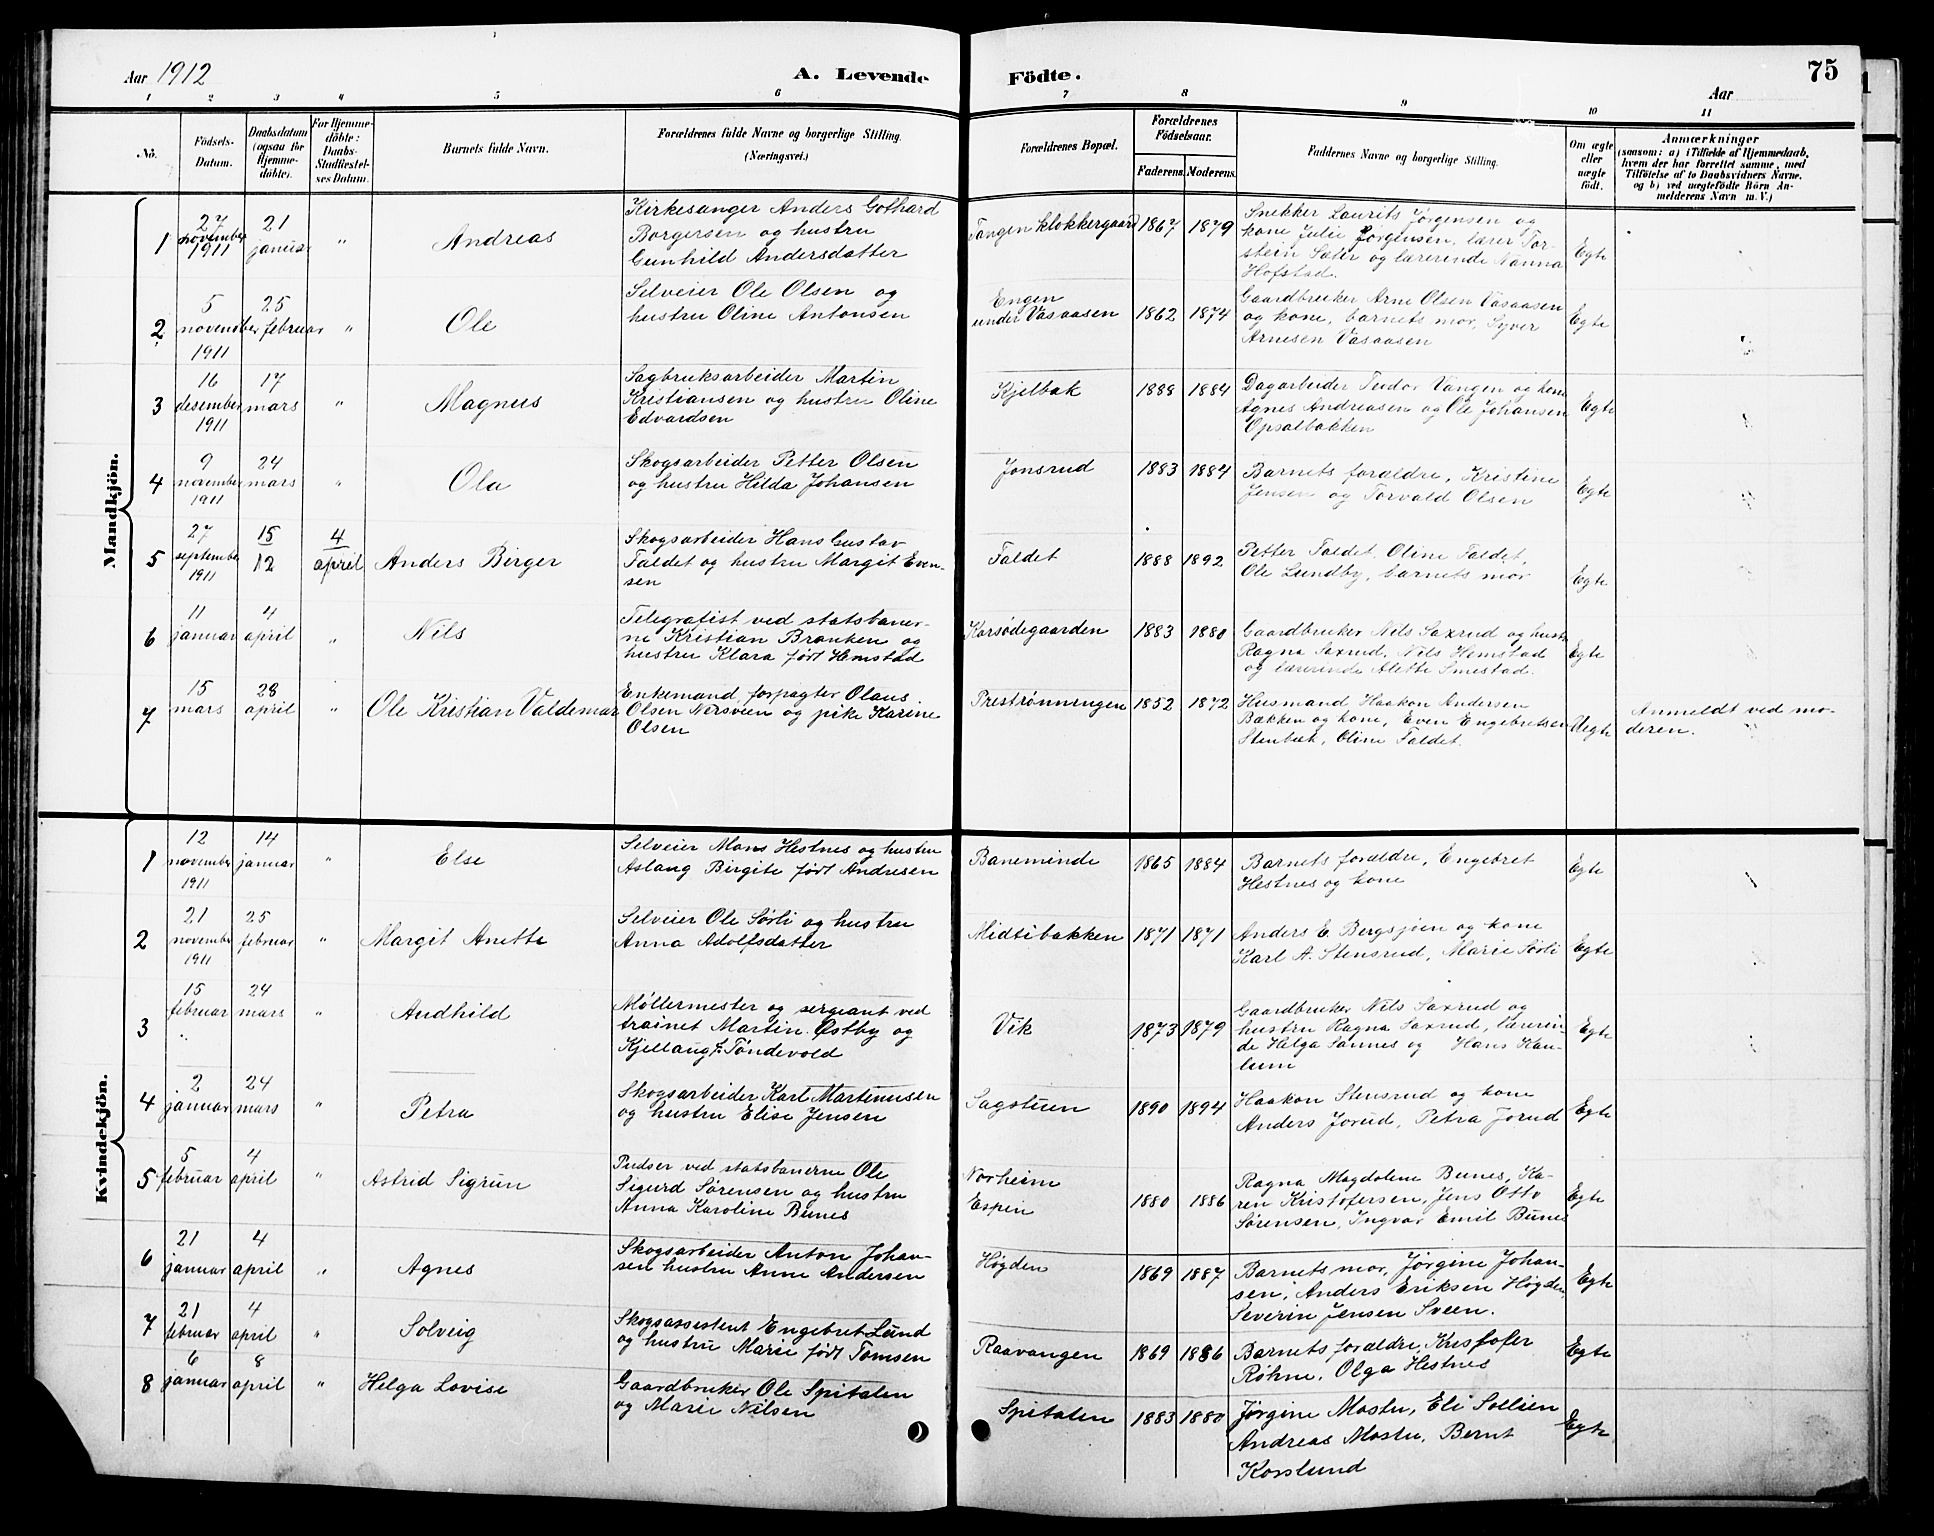 Aar 1912
A. Levende Födte.
75
Aar
1 2 3 4 5 6 7 8 9 10 11
No.
Födsels-
Datum.
Daabsdatum
(ogsaa for
Hjemme-
döbte).
For Hjemme-
döbte:
Daabs-
Stadfæstel-
ses Datum.
Barnets fulde Navn.
Forældrenes fulde Navne og borgerlige Stilling.
(Næringsvei.)
Forældrenes Bopæl.
Forældrenes
Födselsaar.
Faderens.
Moderens.
Faddernes Navne og borgerlige Stilling.
Om ægte
eller
uægte
födt.
Anmærkninger
(saasom: a) i Tilfælde af Hjemmedaab,
hvem der har forrettet samme, med
Tilföielse af to Daabsvidners Navne,
og b) ved uægtefödte Börn An-
melderens Navn m. V.)
Mandkjön.
1
27
november
1911
21
januar
"
Andreas
Kirkesanger Anders Gothard
Borgersen og hustru
Gunhild Andersdatter
Tangen klokkergaard
1867
1879
Snekker Laurits Jørgensen og
kone Julie Jørgensen, lærer Tor-
stein Sæter og lærerinde Nanna
Hofstad.
Egte
2
5
november
1911
25
februar
"
Ole
Selveier Ole Olsen og
hustru Oline Antonsen
Engen
under Vasaasen
1862
1874
Gaardbruker Arne Olsen Vasaasen
og kone, barnets mor, Syver
Arnesen Vasaasen
Egte
3
16
desember
1911
17
mars
"
Magnus
Sagbruksarbeider Martin
Kristiansen og hustru Oline
Edvardsen
Kjelbak
1888
1884
Dagarbeider Teodor Vangen og kone
Agnes Andreasen og Ole Johansen
Opsalbakken
Egte
4
9
november
1911
24
mars
"
Ola
Skogsarbeider Petter Olsen
og hustru Hilda Johansen
Jonsrud
1883
1884
Barnets forældre, Kristine
Jensen og Torvald Olsen
Egte
5
27
september
1911
15
12
4
april
Anders Birger
Skogsarbeider Hans Gustav
Faldet og hustru Margit Even-
sen
Faldet
1888
1892
Petter Faldet, Oline Faldet,
Ole Lundby, barnets mor
Egte
6
11
januar
4
april
"
Nils
Telegrafist ved statsbaner-
ne Kristian Brænken og
hustru Klara født Hemstad
Korsødegaarden
1883
1880
Gaardbruker Nils Saxrud og hustru
Ragna Saxrud, Nils Hemstad
og lærerinde Alette Smestad.
Egte
7
15
mars
28
april
"
Ole Kristian Valdemar
Enkemand forpagter Olaus
Olsen Nersveen og pike Karine
Olsen
Prestrønningen
1852
1872
Husmand Haakon Andersen
Bækken og kone, Even Engebretsen
Stenbæk, Oline Faldet.
Uegte
Anmeldt ved mo-
deren.
Kvindekjön.
1
12
november
1911
14
januar
"
Else
Selveier Mons Hestnes og hustru
Aslaug Birgite født Andresen
Baneminde
1865
1884
Barnets forældre, Engebret
Hestnes og kone
Egte
2
21
november
1911
25
februar
"
Margit Anette
Selveier Ole Sørli og hustru
Anna Adolfsdatter
Midtibakken
1871
1871
Anders C. Bergsjøen og kone
Karl A. Stensrud, Marie Sørli
Egte
3
15
februar
24
mars
"
Audhild
Møllermester og sergeant ved
trainet Martin Østby og
Kjellaug f. Tøndevold
Vik
1873
1879
Gaardbruker Nils Saxrud og
hustru Ragna Saxrud, lærerin
de Helga Sannes og Hans Kau-
lum
Egte
4
2
januar
24
mars
"
Petra
Skogsarbeider Karl Martinusen
og hustru Elise Jensen
Sagstuen
1890
1894
Haakon Stensrud og kone
Anders Jorud, Petra Jorud
Egte
5
5
februar
4
april
"
Astrid Sigrun
Pudser ved statsbanerne Ole
Sigurd Sørensen og hustru
Anna Karoline Bunes
Norheim
Espen
1880
1886
Ragna Magdalene Bunes, Ka-
ren Kristofersen, Jens Otto
Sørensen, Ingvar Emil Bunes
Egte
6
21
januar
4
april
"
Agnes
Skogsarbeider Anton Johan-
sen hustru Anne Andersen
Høgden
1869
1887
Barnets mor, Jørgine Johan-
sen, Anders Eriksen Høgden,
Severin Jensen Sveen.
Egte
7
21
februar
4
april
"
Solveig
Skogsassistent Engebret Lund
og hustru Marie født Tomsen
Raavangen
1869
1886
Barnets forældre, Kristofer
Røhne, Olga Hestnes
Egte
8
6
januar
8
april
"
Helga Lovise
Gaardbruker Ole Spitalen
og Marie Nilsen
Spitalen
1883
1880
Jørgine Mostu, Eli Sollien
Andreas Mostu, Bernt
Korslund
Egte